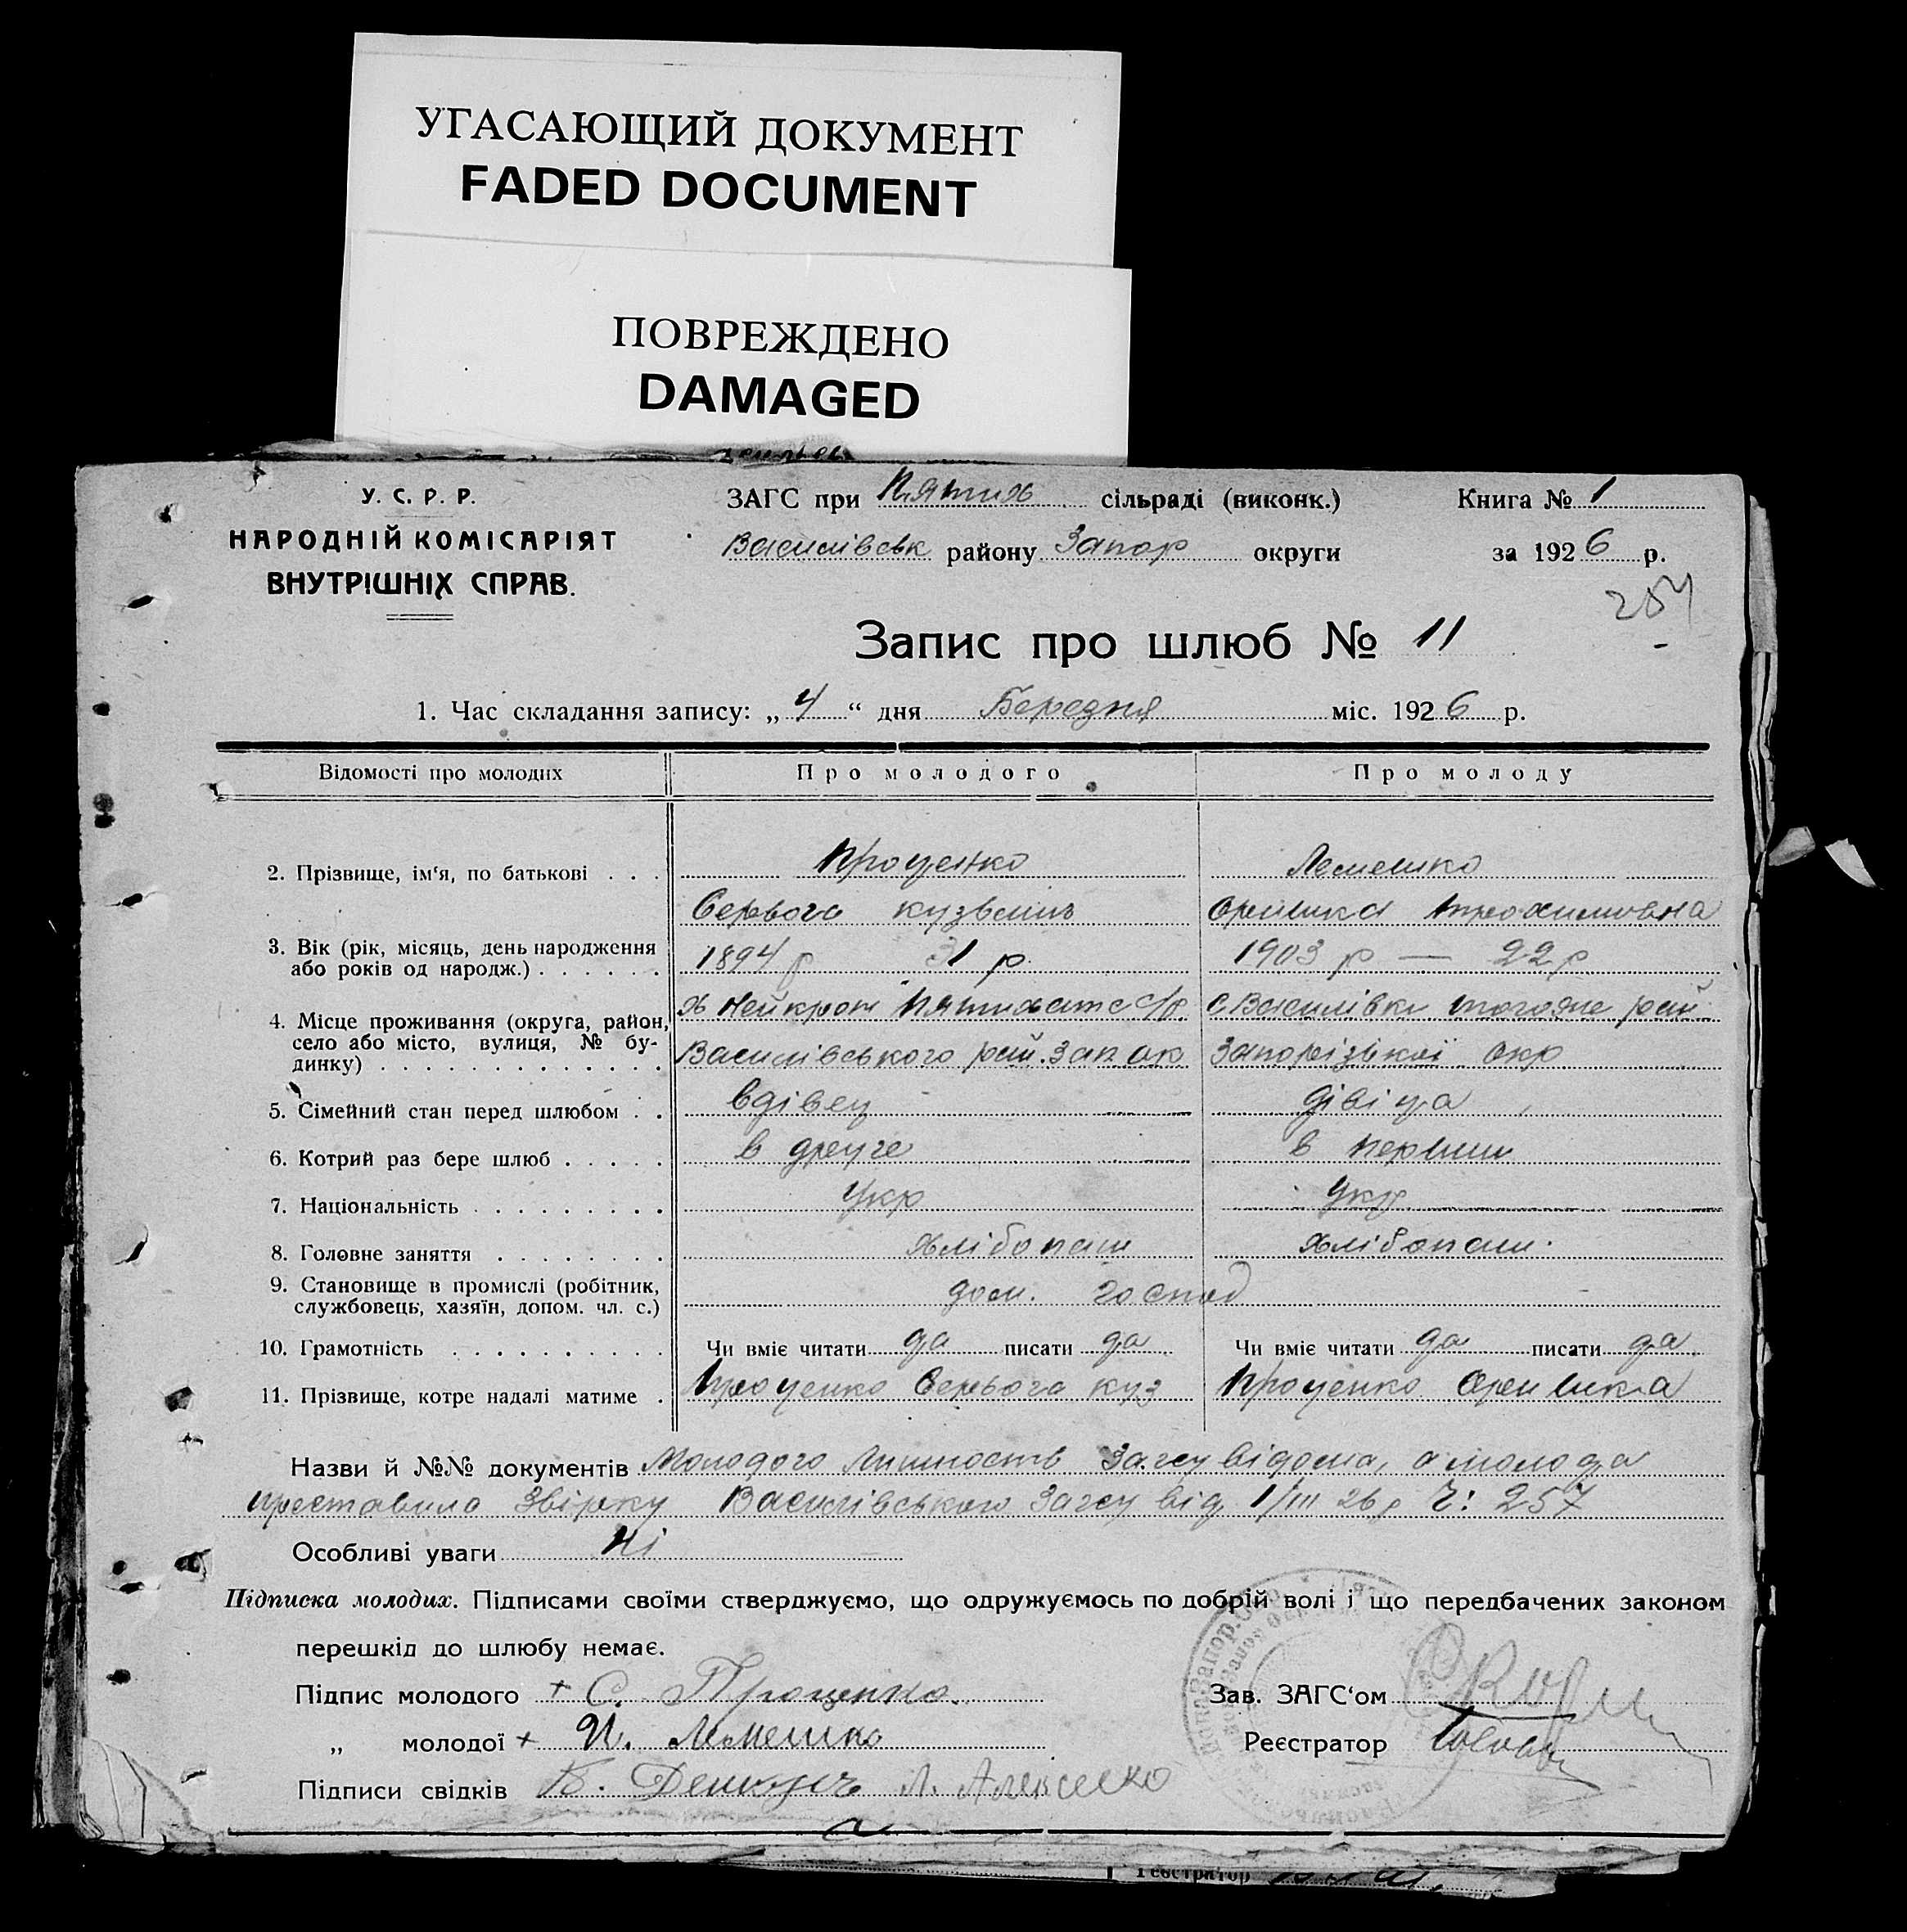 УГАСАЮЩИЙ ДОКУМЕНТ
FADED DOCUMENT
ПОВРЕЖДЕНО
DAMAGED
У. С. Р. Р.
НАРОДНІЙ КОМІСАРІЯТ
ВНУТРІШНІХ СПРАВ.
ЗАГС при Пятих сільраді (виконк.) Книга № 1
Василівськ району Запор округи за 1926 р.
Запис про шлюб № 11
1. Час складання запису: „4“ дня Березня міс. 1926 р.
Відомості про молодих Про молодого Про молоду
2. Прізвище, ім‘я, по батькові . . . Проценко Лемешко
Сервога кузвмин Оришка
3. Вік (рік, місяць, день народження
або років од народж.) . . . . . . 1894 р 31 р. 1903 р — 22 р
4. Місце проживання (округа, район,
село або місто, вулиця, № будинку) . . . . . . . . . . . . . х Нейкрон Пятихатс с/р с Василівки тогоже рай
Василівського рай. Зап ок Запорізької окр
5. Сімейний стан перед шлюбом . . вдівец дівіца
6. Котрий раз бере шлюб . . . . . в друге в перший
7. Національність . . . . . . . . . Укр Укр
8. Головне заняття . . . . . . . . хлібопаш хлібопаш.
9. Становище в промислі (робітник,
службовець, хазяїн, допом. чл. с.) дом. господ
10. Грамотність . . . . . . . . . . Чи вміє читати да писати да Чи вміє читати да писати да
11. Прізвище, котре надалі матиме . Проценко Сервога куз Проценко Оришка
Назви й №№ документів Молодого Личность Загсу відома, а молода
приставила Звірку Василівського Загсу від 1/III 26 р Ч: 257
Особливі уваги Ні
Підписка молодих. Підписами своїми стверджуємо, що одружуємось по добрій волі і що передбачених законом
перешкід до шлюбу немає.
Підпис молодого + С. Проценко. Зав. ЗАГС‘ом
„ молодої + И. Лемешко Реєстратор
Підписи свідків Л. Алексеєко
Реєстратор